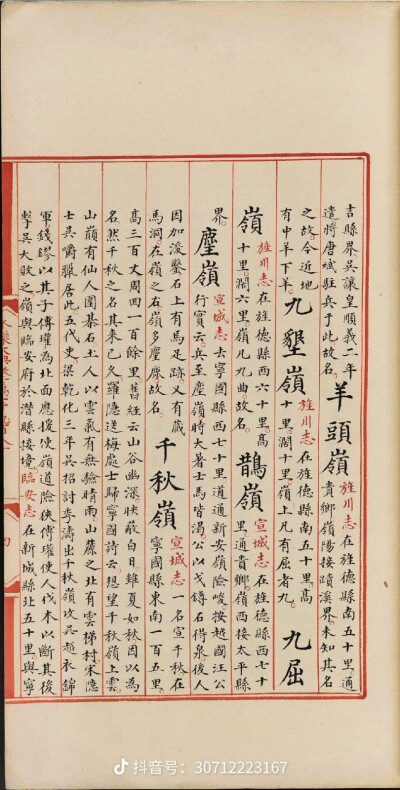 吉縣界。吳讓皇順義二年
遣將唐城駐兵于此故名。
羊頭嶺
旌川志在旌德縣南五十里。通
貴鄉嶺陽接蹟溪界。未知其名
之故今近地
有中羊下羊。
九墾嶺
旌川志在旌德縣南五十里。高
十里。濶十里。嶺上凡有屈者九。
九屈
嶺
旌川志在旌德縣西六十里。高
十里。濶六里嶺凡九曲故名。
鵲嶺
宣城志在旌德縣西七十
里通貴鄉。嶺西接太平縣
界。
塵嶺
宣城志去寧國縣西七十里道通新安嶺險峻。按越國汪公
行實云。兵至塵嶺時大暑士馬皆渴。公以戈鐏石得泉。後人
因加浚鑿石上有馬足跡。又有藏
馬洞。在嶺之石。嶺多塵麋故名。
千秋嶺
宣城志一名宣千秋在
寧國縣東南一百五里。
高三百丈周回一百餘里。舊經云山谷幽深。映蔽白日。雖夏如秋因以為
名。然千秋之名其來已久。羅隱送梅處士歸寧國詩云。想望千秋嶺上雲
山巔有仙人圍碁石。土人以雲氣有無驗晴雨。山麓之北有雲梯村。宋隱
士吳嚼臘居此。五代史。梁乾化三年吳招討李濤出千秋嶺攻吳越衣錦
軍。錢鏐以其子傳瓘為北面應援使嶺道險狹傳瓘使人伐木以斷其後
擊吳大敗之。嶺與臨安府於潛縣接境。臨安志在新城縣北五十里與寧
抖音号：30712223167